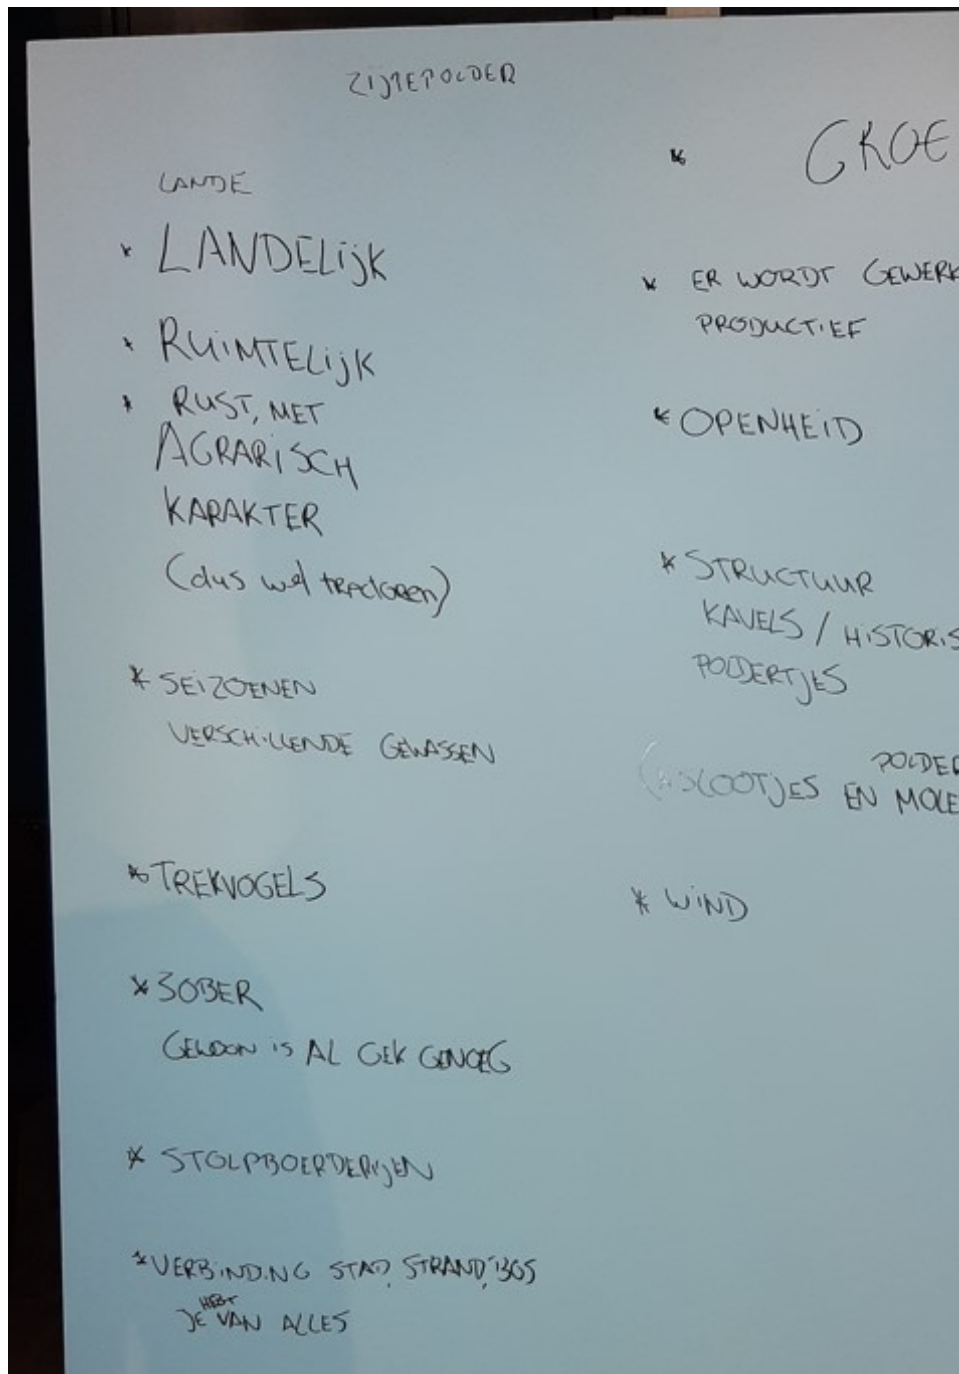 ZIJPEPOLDER
LANDE
* LANDELIJK
* RUIMTELIJK
* RUST, MET
AGRARISCH
KARAKTER
(dus wel tractoren)
* SEIZOENEN
VERSCHILLENDE GEWASSEN
* TREKVOGELS
* SOBER
GEWOON IS AL GEK GENOEG
* STOLPBOERDERIJEN
* VERBINDING STAD, STRAND, BOS
JE HEBT VAN ALLES
* GROE
* ER WORDT GEWERK
PRODUCTIEF
* OPENHEID
* STRUCTUUR
KAVELS / HISTORIS
POLDERTJES
POLDER
SLOOTJES EN MOLE
* WIND